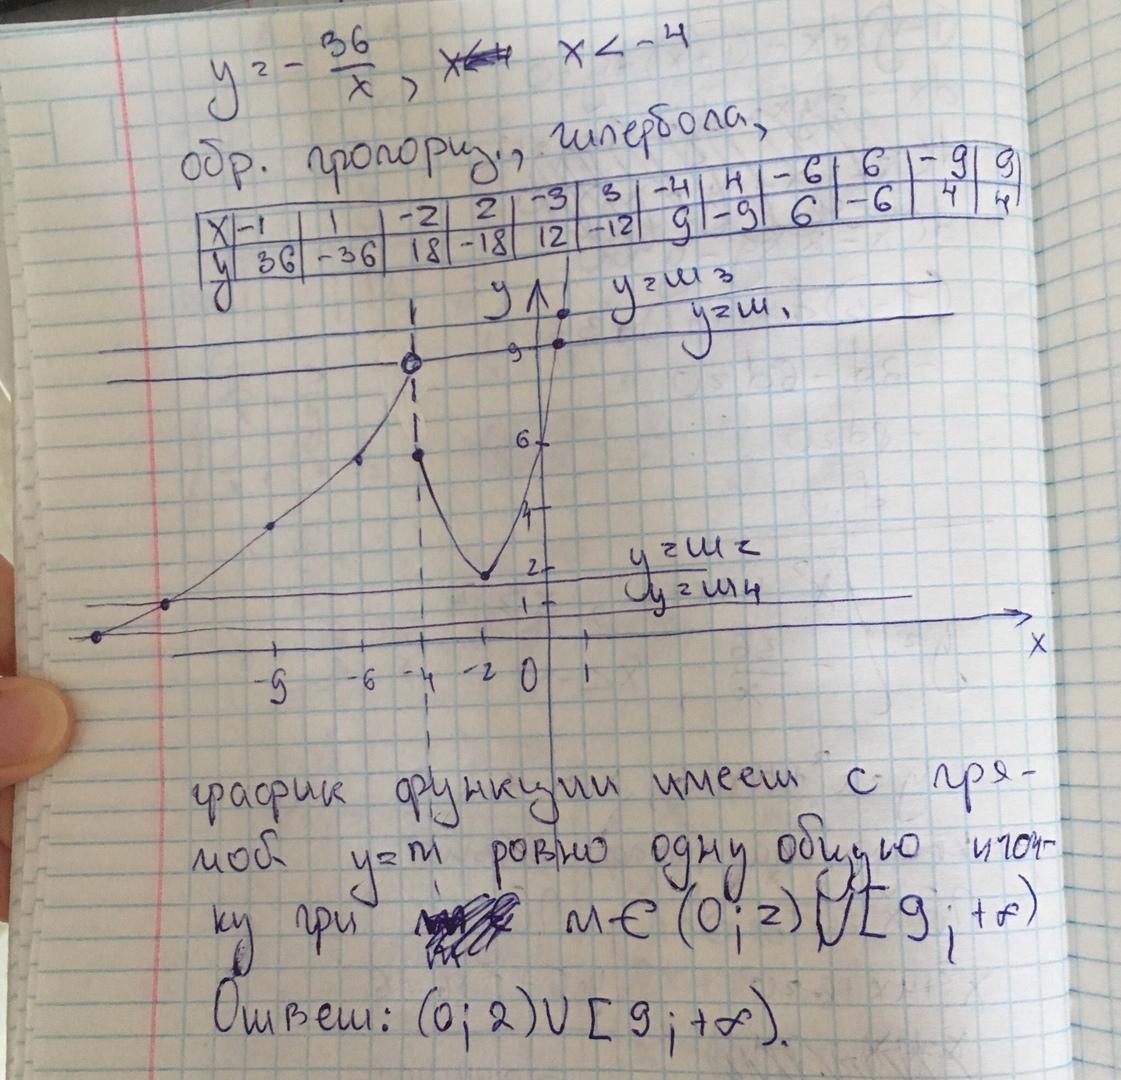 y = - 36/x, x < -4
обр. пропорц., гипербола,
x -1 1 -2 2 -3 3 -4 4 -6 6 -9 9
y 36 -36 18 -18 12 -12 9 -9 6 -6 4 4
y y=m3
y=m1
9
6
4
y=m2
2
y=m4
1
-9 -6 -4 -2 0 1 x
график функции имеет с пря-
мой y=m ровно одну общую точ-
ку при m∈(0;2)∪[9;+∞)
Ответ: (0;2)∪[9;+∞).